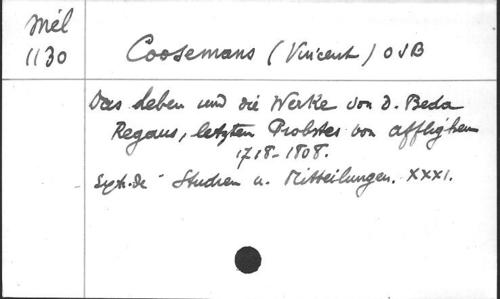 Mél
1130
Coosemans (Vincent) OSB
Das Leben und die Werke von D. Beda
Regaus, letzten Probstes von Afflighem
1718-1808.
Extr. de Studien u. Mitteilungen. XXXI.